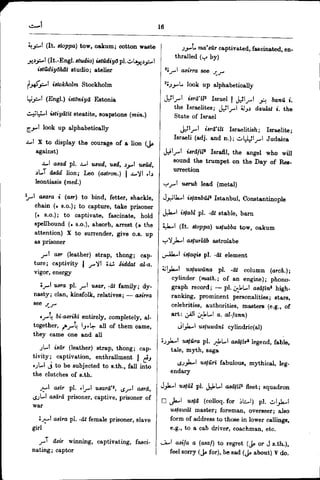 اسب 16
اسطب (It. stoppa) tow, cakum; cotton waste
استوديو (It.-Engl. studio) istūdiyō pl. استوديوهات
istūdiyōhāt studio; atelier
استوكهولم istokholm Stockholm
استونيا (Engl.) istōniyā Estonia
استياتيت istiyātīt steatite, soapstone (min.)
استج look up alphabetically
اسد X to display the courage of a lion (على
against)
اسد asad pl. اسد usud, usd, اسود usūd,
آساد āsād lion; Leo (astron.) | داء الاسد
leontiasis (med.)
اسر asara i (asr) to bind, fetter, shackle,
chain (ه s.o.); to capture, take prisoner
(ه s.o.); to captivate, fascinate, hold
spellbound (ه s.o.), absorb, arrest (ه the
attention) X to surrender, give o.s. up
as prisoner
اسر asr (leather) strap, thong; cap-
ture; captivity | شدة الاسر šiddat al-a.
vigor, energy
اسرة usra pl. اسر usar, -āt family; dy-
nasty; clan, kinsfolk, relatives; — asirra
see سر
باسره bi-asrihī entirely, completely, al-
together, جاؤوا باسرهم all of them came,
they came one and all
اسار isār (leather) strap, thong; cap-
tivity; captivation, enthrallment | وقع
فى اساره to be subjected to s.th., fall into
the clutches of s.th.
اسير asīr pl. اسراء usarā'², اسرى asrā,
اسارى asārā prisoner, captive, prisoner of
war
اسيرة asīra pl. -āt female prisoner, slave
girl
آسر āsir winning, captivating, fasci-
nating; captor
مأسور ma'sūr captivated, fascinated, en-
thralled (ب by)
اسرة asirra see سر
اسرب look up alphabetically
اسرائيل isrā'īl² Israel | بنو اسرائيل banū i.
the Israelites; دولة اسرائيل daulat i. the
State of Israel
اسرائيلى isrā'īlī Israelitish; Israelite;
Israeli (adj. and n.); اسرائيليات Judaica
اسرافيل isrāfīl² Israfil, the angel who will
sound the trumpet on the Day of Res-
urrection
اسرب usrub lead (metal)
اسطانبول istanbūl² Istanbul, Constantinople
اسطبل istabl pl. -āt stable, barn
اسطبة (It. stoppa) ustubba tow, oakum
اسطرلاب asturlāb astrolabe
اسطقس istaqis pl. -āt element
اسطوانة ustuwāna pl. -āt column (arch.);
cylinder (math.; of an engine); phono-
graph record; — pl. اساطين asātīn² high-
ranking, prominent personalities; stars,
celebrities, authorities, masters (e.g., of
art: اساطين الفن a. al-fann)
اسطوانى ustuwānī cylindric(al)
اسطورة ustūra pl. اساطير asātīr² legend, fable,
tale, myth, saga
اسطورى ustūrī fabulous, mythical, leg-
endary
اسطول ustūl pl. اساطيل asātīl² fleet; squadron
اسطى ustā (colloq. for استاذ) pl. اسطوات
ustawāt master; foreman, overseer; also
form of address to those in lower callings,
e.g., to a cab driver, coachman, etc.
اسف asifa a (asaf) to regret (على or ل s.th.),
feel sorry (على for), be sad (على about) V do.